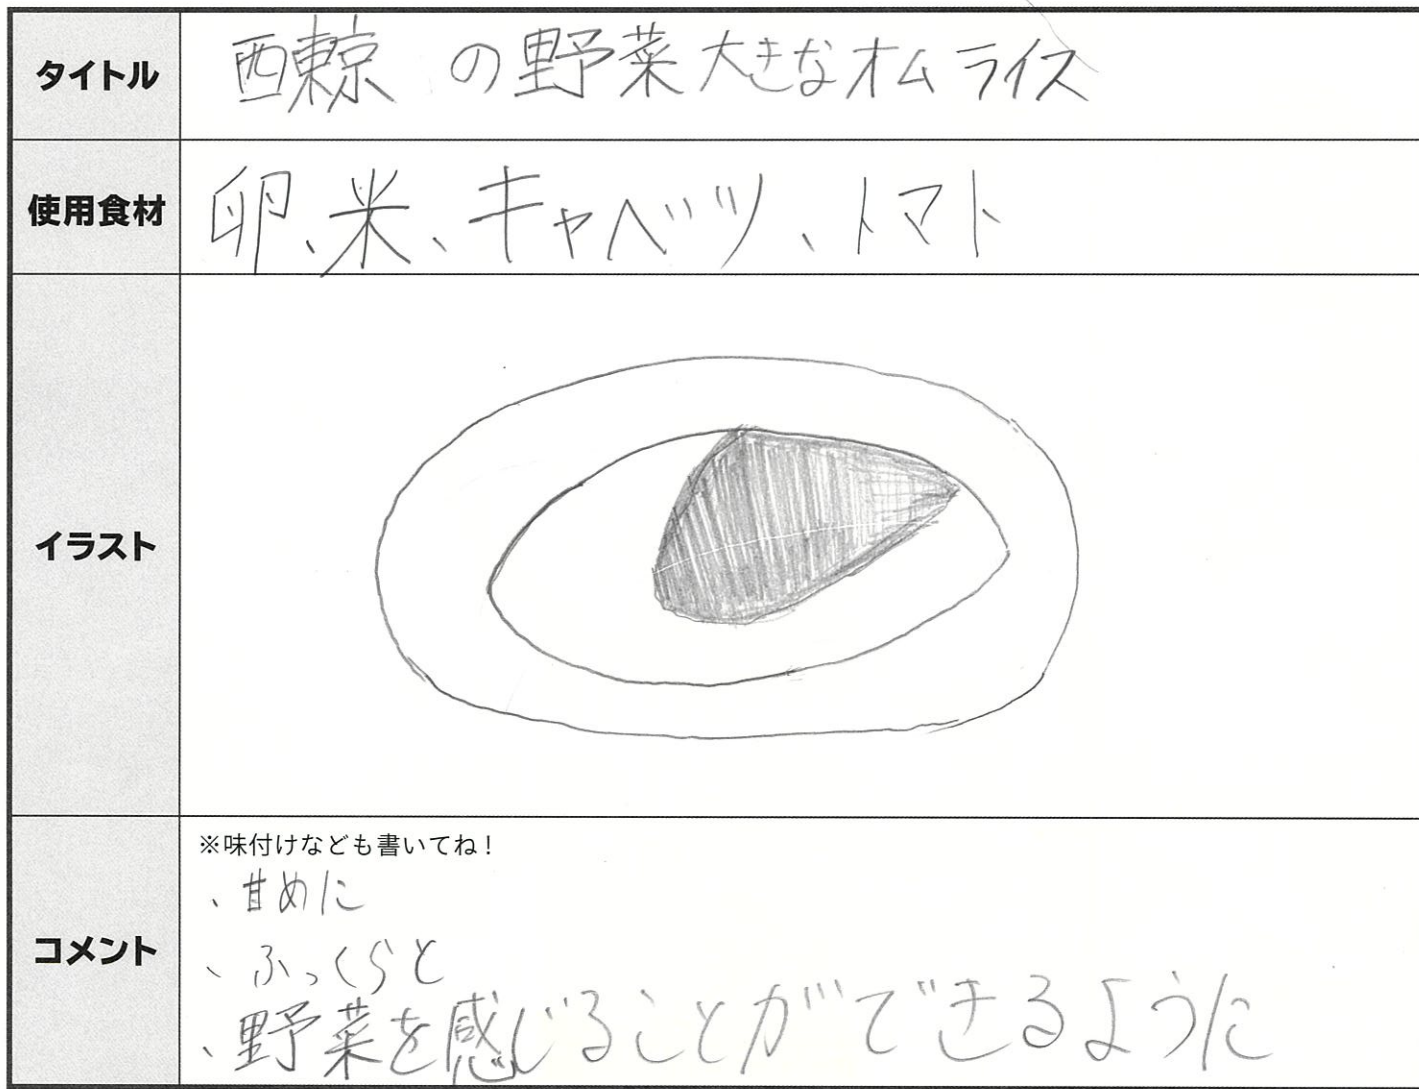 タイトル
西東京の野菜大きなオムライス
使用食材
卵、米、キャベツ、トマト
イラスト
コメント
※味付けなども書いてね！
、甘めに
、ふっくらと
、野菜を感じることができるように